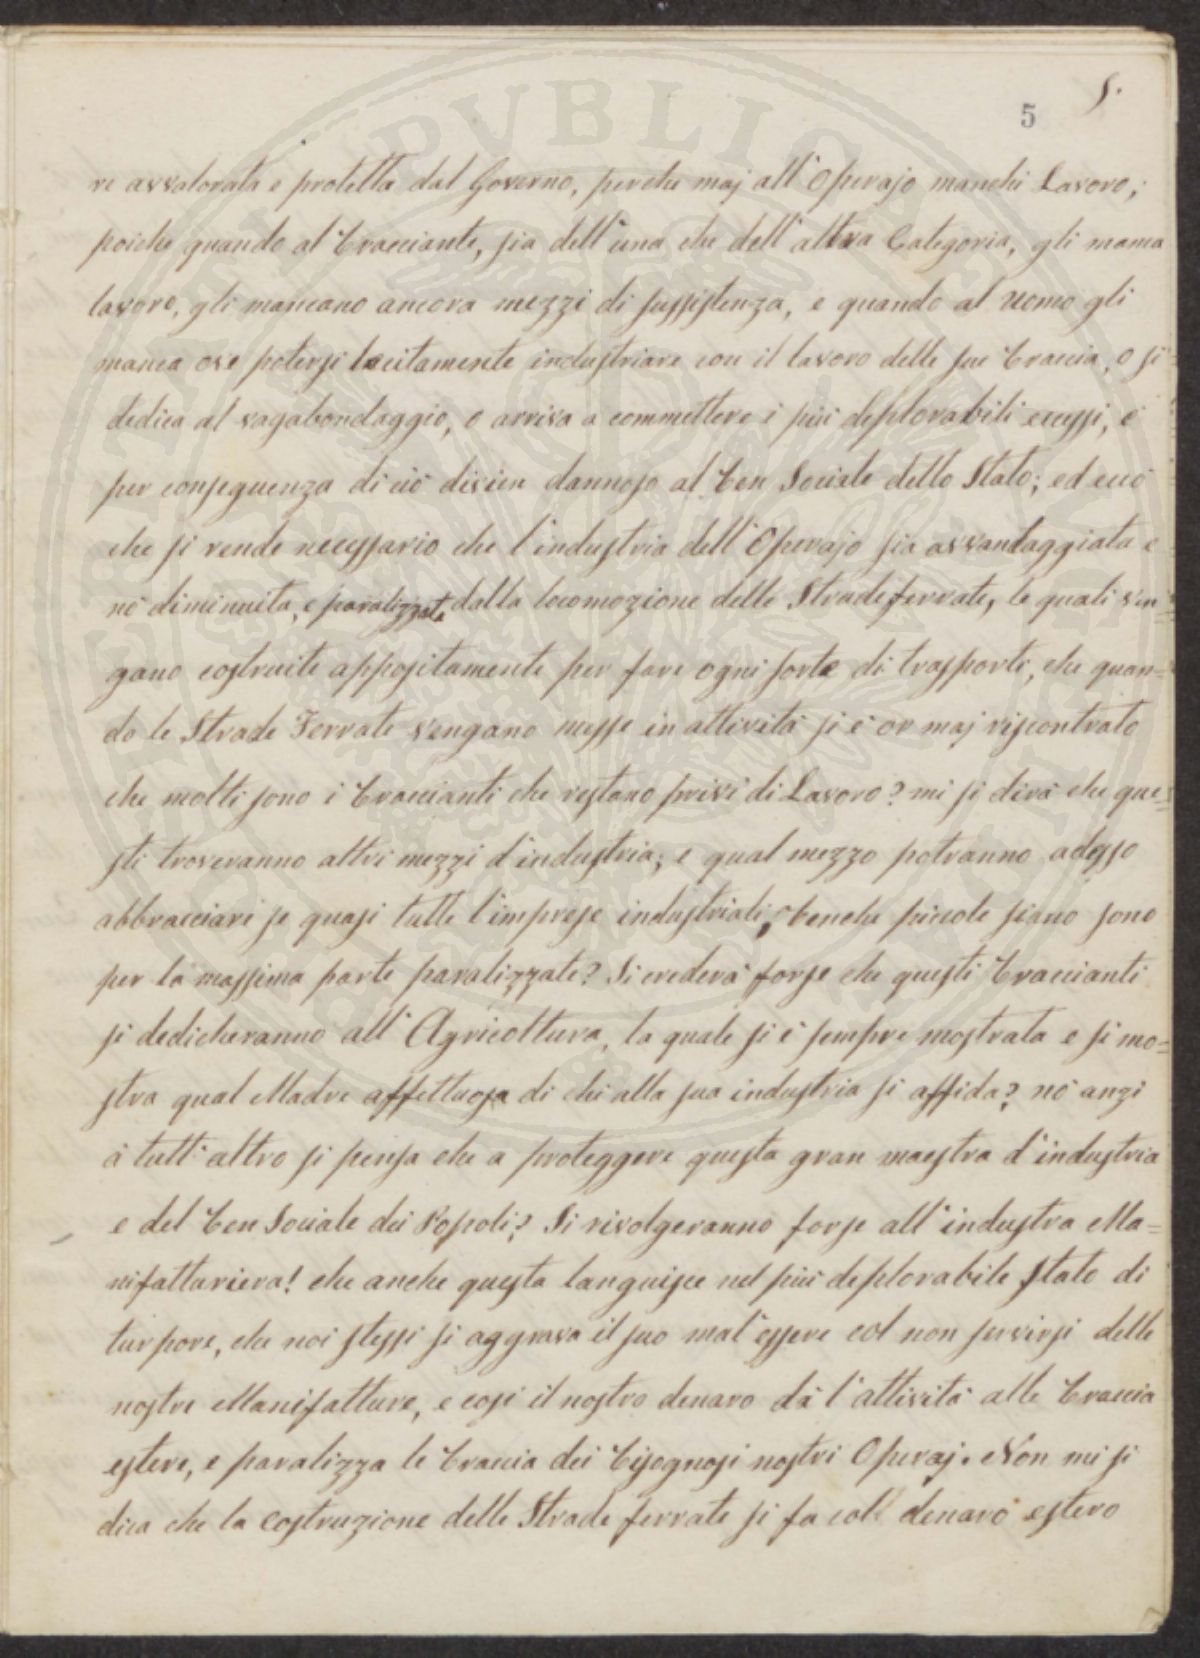 5 5.
re avvalorata e protetta dal Governo, perche maj all'Operajo manchi Lavoro;
poiche quando al Bracciante, sia dell'una che dell'altra Categoria, gli manca
lavoro, gli mancano ancora mezzi di sussistenza, e quando al uomo gli
manca ove potersi lecitamente industriare con il lavoro delle sue Braccia, o si
dedica al vagabondaggio, o arriva a commettere i più deplorabili eccessi, e
per conseguenza di ciò divien dannoso al Ben Sociale dello Stato; ed ecco
che si rende necessario che l'industria dell'Operajo sia avvantaggiata e
nò diminuita, e paralizzata dalla locomozione delle Strade ferrate, le quali ven=
gano costruite appositamente per fare ogni sorte di trasporti, che quan=
do le Strade Ferrate vengano messe in attività si è or maj riscontrato
che molti sono i Braccianti che restano privi di Lavoro? mi si dirà che que=
sti troveranno altri mezzi d'industria; e qual mezzo potranno adesso
abbracciari se quasi tutte l'imprese industriali, benche piccole siano sono
per la massima parte paralizzate? Si crederà forse che questi Braccianti
si dedicheranno all'Agricoltura, la quale si è sempre mostrata e si mo=
stra qual Madre affettuosa di chi alla sua industria si affida? nò anzi
à tutt'altro si pensa che a proteggere questa gran maestra d'industria
e del Ben Sociale dei Popoli? Si rivolgeranno forse all'industra Ma=
nifatturiera! che anche questa languisce nel più deplorabile Stato di
turpore, che noi stessi si aggrava il suo mal'essere col non servirsi delle
nostre Manifatture, e così il nostro denaro dà l'attività alle Braccia
estere, e paralizza le Braccia dei Bisognosi nostri Operaj. Non mi si
dica che la costruzione delle Strade ferrate si fa coll denaro estero
PVBLICA